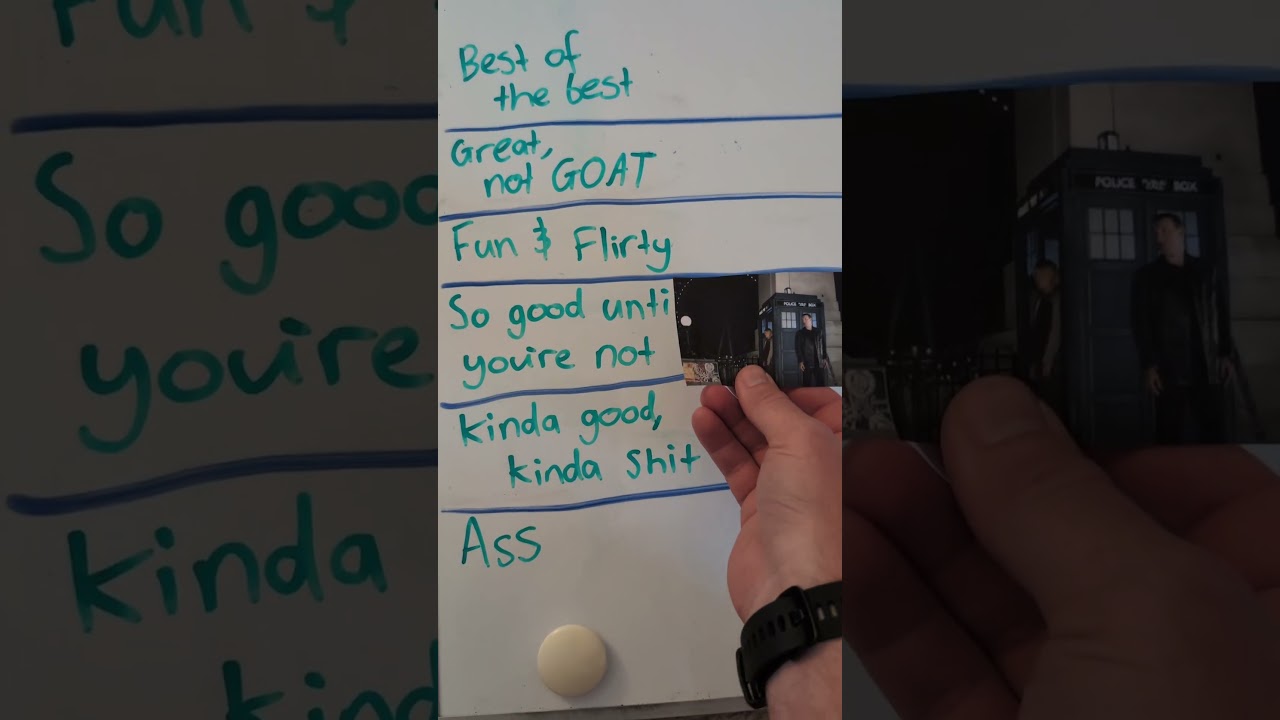 Best of
the best
Great,
not GOAT
Fun & Flirty
So good unti
you're not
kinda good,
kinda shit
Ass
POLICE BOX